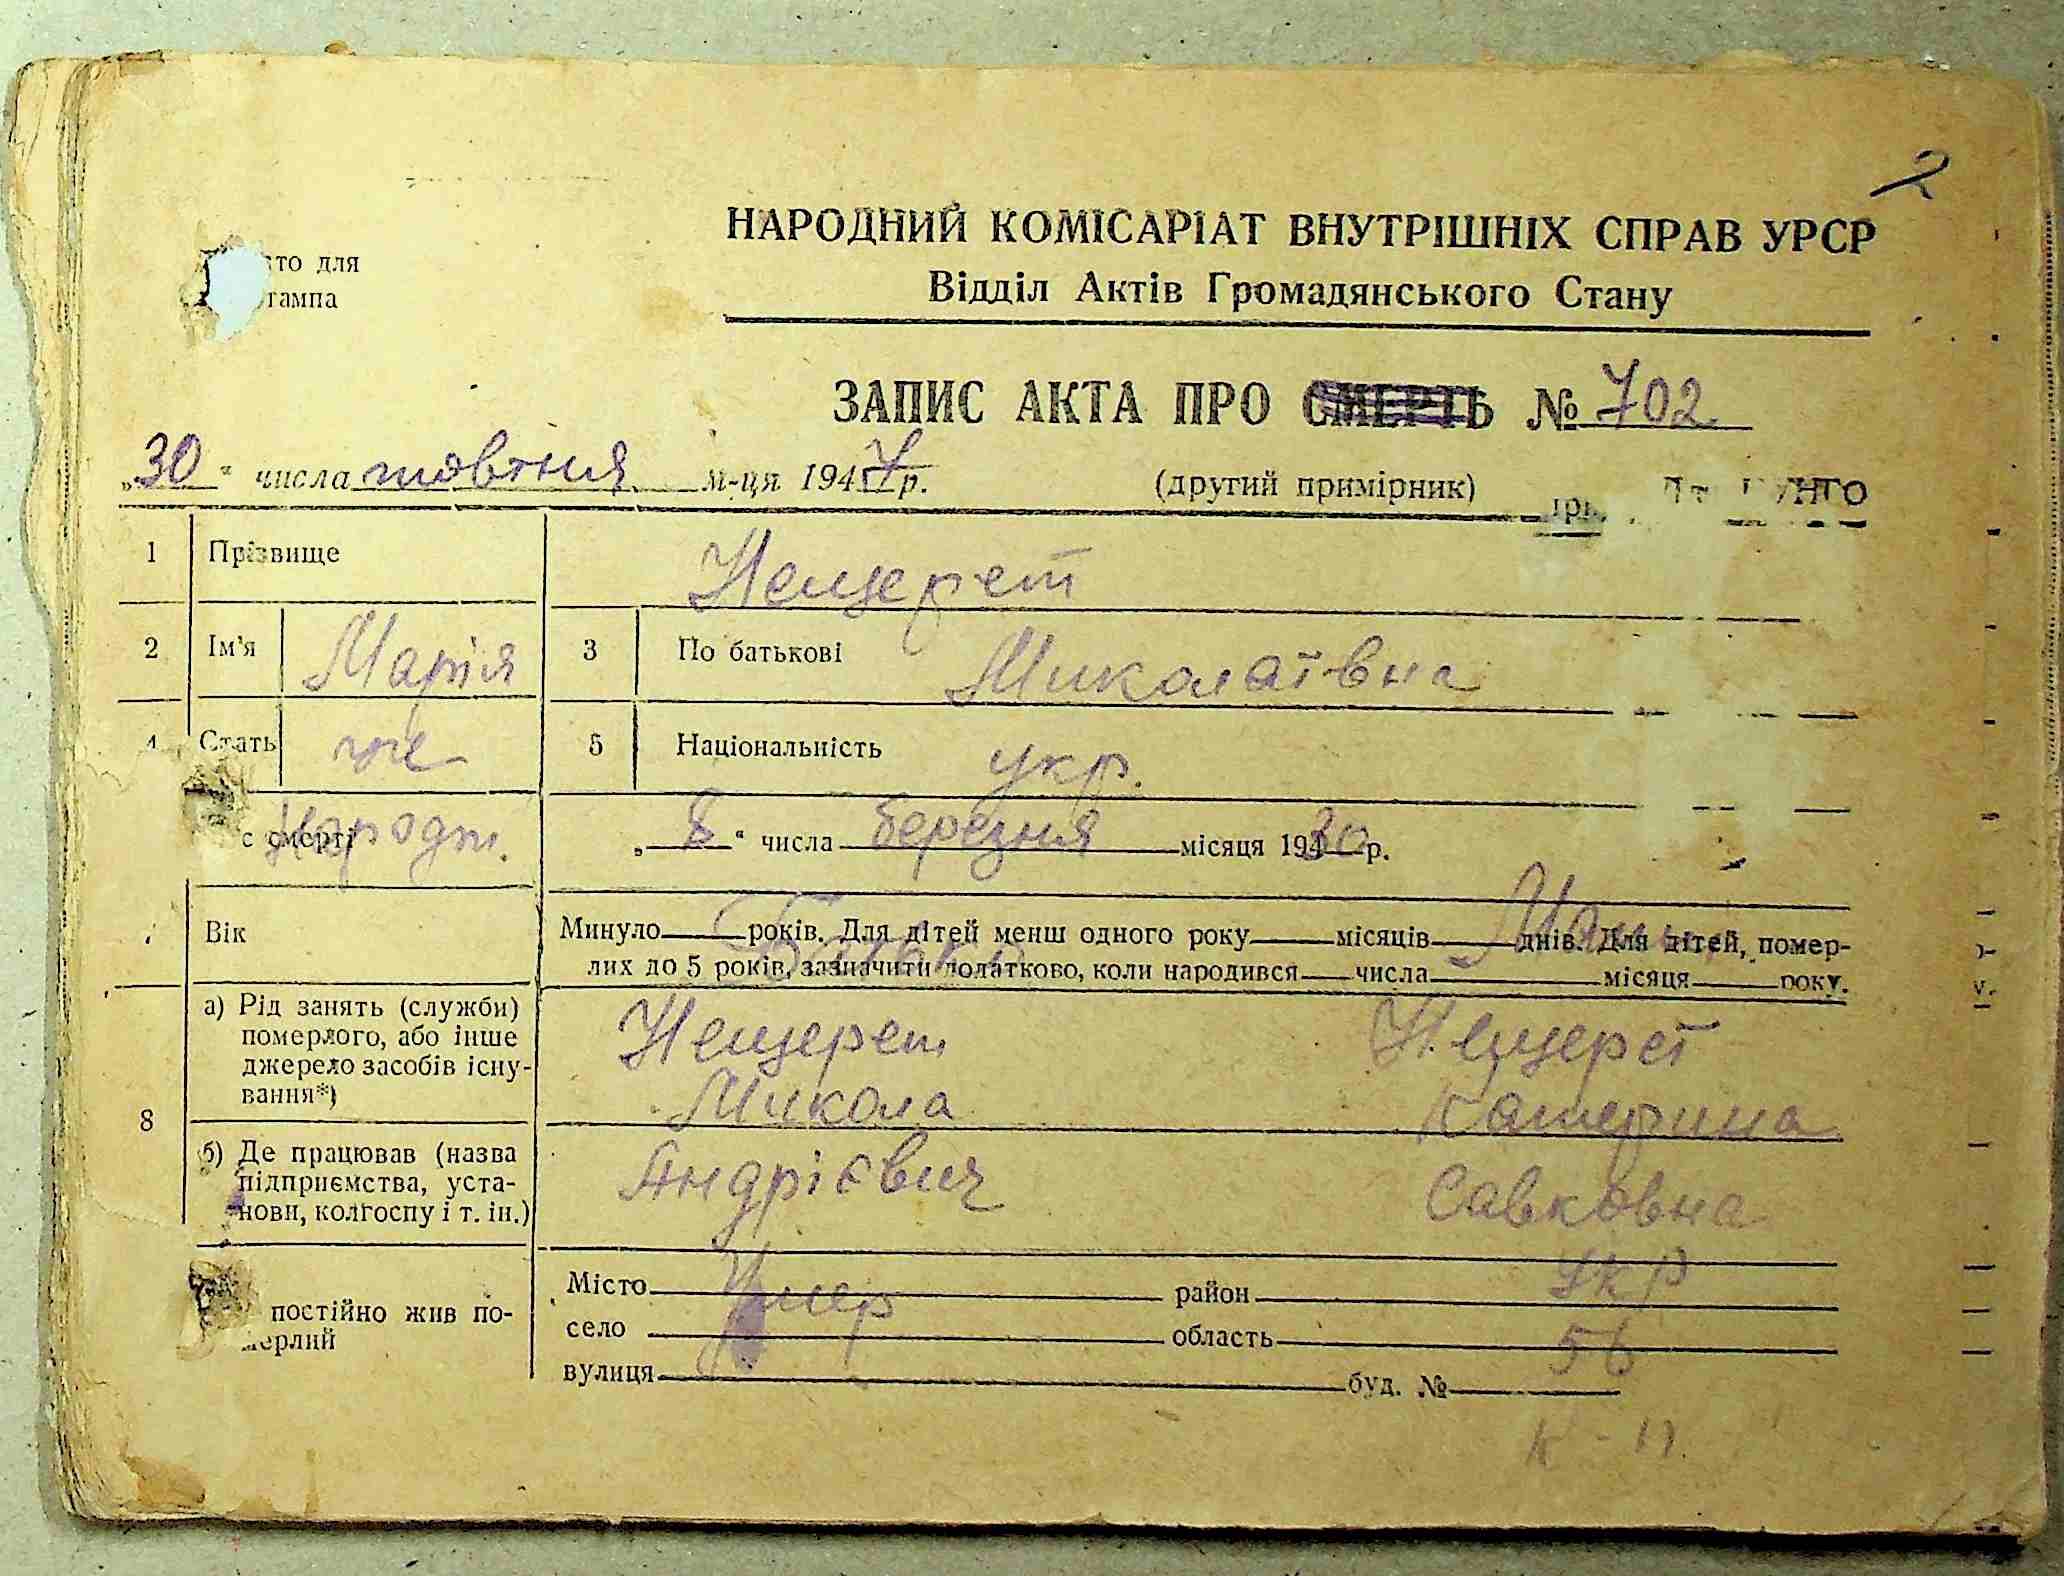 2
НАРОДНИЙ КОМІСАРІАТ ВНУТРІШНІХ СПРАВ УРСР
Відділ Актів Громадянського Стану
сто для
тампа
ЗАПИС АКТА ПРО СМЕРТЬ № 702
„30“ числа жовтня м-ця 1947 р.
(другий примірник)
1 Прізвище Нещерет
2 Ім'я Марія 3 По батькові Миколаївна
4 Стать же 5 Національність укр.
с смерті Народж. „8“ числа березня місяця 1930 р.
Вік Минуло років. Для дітей менш одного року місяців днів. Для дітей, помер-
лих до 5 років, зазначити додатково, коли народився числа місяця року.
Батьки
8 а) Рід занять (служби)
померлого, або інше
джерело засобів існу-
вання*)
Нещерет Нещерет
Микола Катерина
б) Де працював (назва
підприємства, уста-
нови, колгоспу і т. ін.)
Андрієвич Савковна
постійно жив по-
мерлий
Місто район
Умер укр
село область 56
вулиця буд. №
к-п.